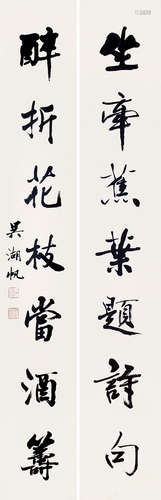 坐牽蕉葉題詩句
醉折花枝當酒籌
吳湖帆